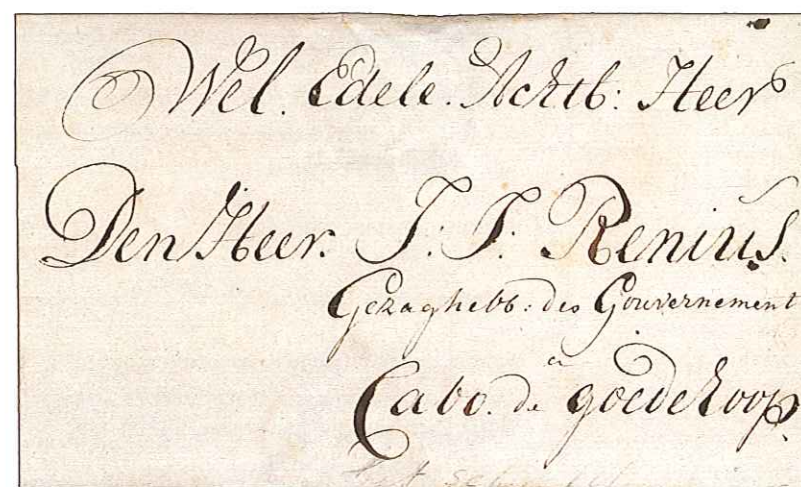 Wel. Edele. Achtb: Heer
Den Heer. J: J: Renius.
Gezaghebb: des Gouvernement
a
Cabo. de goede hoop.